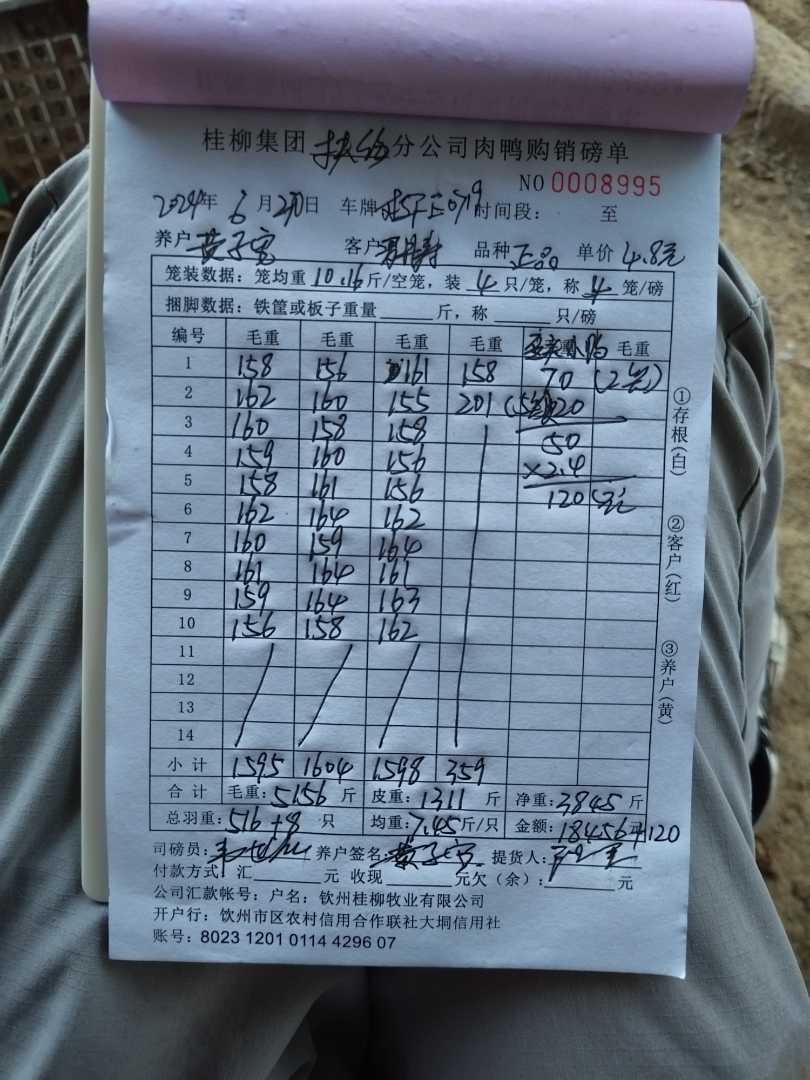 桂柳集团 扶绥 分公司肉鸭购销磅单
NO 0008995
2024年 6月20日 车牌 时间段: 至
养户 黄子宝 客户 品种 正品 单价 4.8元
笼装数据: 笼均重 10.16 斤/空笼, 装 4 只/笼, 称 4 笼/磅
捆脚数据: 铁筐或板子重量 斤, 称 只/磅
编号 毛重 毛重 毛重 毛重 毛重
1 158 156 161 158 70 (2笼)
2 162 160 155 201 (5笼) 20
3 160 158 158
4 159 160 156 50
5 158 161 156 ×2.4
6 162 164 162 120元
7 160 159 164
8 161 164 161
9 159 164 163
10 156 158 162
11
12
13
14
小计 1595 1604 1598 359
合计 毛重: 5156 斤 皮重: 1311 斤 净重: 3845 斤
总羽重: 516+8 只 均重: 7.45 斤/只 金额: 18456元+120
司磅员: 养户签名: 黄子宝 提货人:
付款方式: 汇 元 收现 元欠(余): 元
公司汇款帐号: 户名: 钦州桂柳牧业有限公司
开户行: 钦州市区农村信用合作联社大垌信用社
账号: 8023 1201 0114 4296 07
①存根(白)
②客户(红)
③养户(黄)